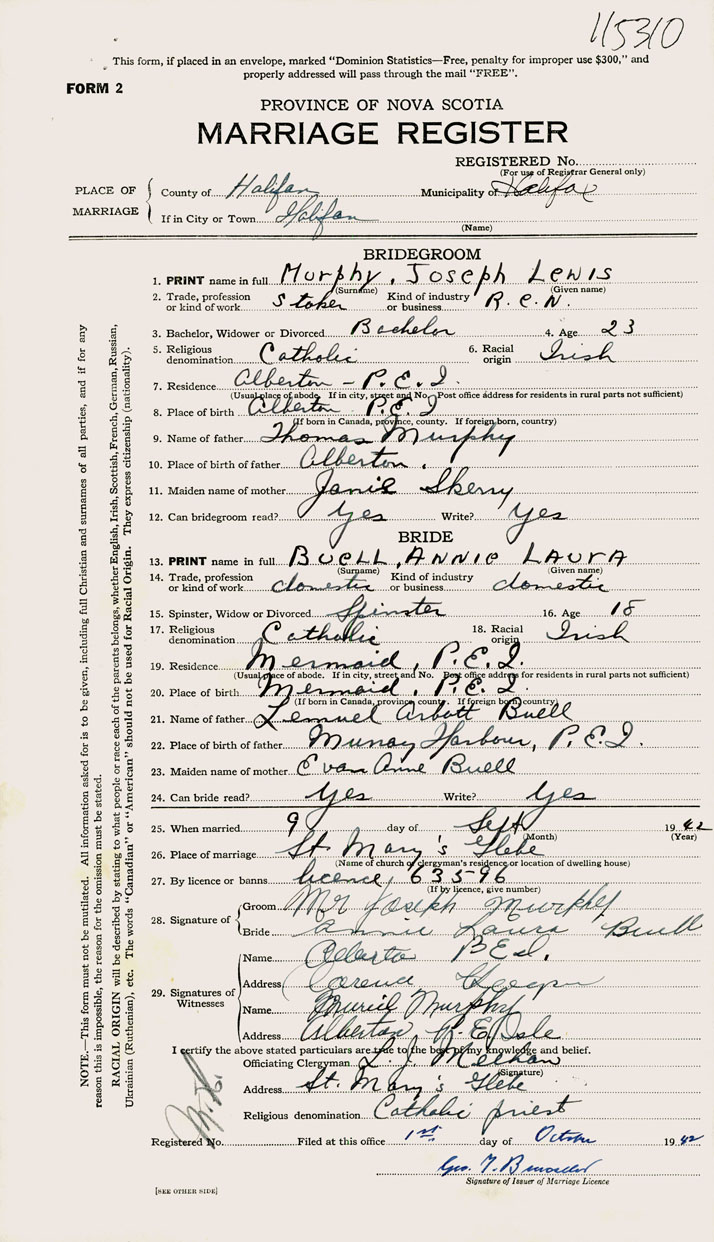 115310
This form, if placed in an envelope, marked "Dominion Statistics—Free, penalty for improper use $300," and
properly addressed will pass through the mail "FREE".
FORM 2
PROVINCE OF NOVA SCOTIA
MARRIAGE REGISTER
REGISTERED No.
(For use of Registrar General only)
PLACE OF MARRIAGE
County of Halifax Municipality of Halifax
If in City or Town Halifax
(Name)
BRIDEGROOM
1. PRINT name in full Murphy, Joseph Lewis
(Surname) (Given name)
2. Trade, profession or kind of work Stoker Kind of industry or business R.C.N.
3. Bachelor, Widower or Divorced Bachelor 4. Age 23
5. Religious denomination Catholic 6. Racial origin Irish
7. Residence Alberton - P.E.I.
(Usual place of abode. If in city, street and No. Post office address for residents in rural parts not sufficient)
8. Place of birth Alberton P.E.I
(If born in Canada, province, county. If foreign born, country)
9. Name of father Thomas Murphy
10. Place of birth of father Alberton.
11. Maiden name of mother Janie Skerry
12. Can bridegroom read? Yes Write? Yes
BRIDE
13. PRINT name in full BUELL, ANNIE LAURA
(Surname) (Given name)
14. Trade, profession or kind of work domestic Kind of industry or business domestic
15. Spinster, Widow or Divorced Spinster 16. Age 18
17. Religious denomination Catholic 18. Racial origin Irish
19. Residence Mermaid, P.E.I.
(Usual place of abode. If in city, street and No. Post office address for residents in rural parts not sufficient)
20. Place of birth Mermaid, P.E.I.
(If born in Canada, province county. If foreign born, country)
21. Name of father Lemuel Buell
22. Place of birth of father Murray Harbour, P.E.I.
23. Maiden name of mother Anne Buell
24. Can bride read? Yes Write? Yes
25. When married 9 day of Sept 1942
(Month) (Year)
26. Place of marriage St. Mary's Glebe
(Name of church or clergyman's residence or location of dwelling house)
27. By licence or banns licence, 63596
(If by licence, give number)
28. Signature of
Groom Mr Joseph Murphy
Bride Annie Laura Buell
29. Signatures of Witnesses
Name
Address
Name Muriel Murphy
Address Alberton
I certify the above stated particulars are true to the best of my knowledge and belief.
Officiating Clergyman L. J.
(Signature)
Address St. Mary's Glebe
Religious denomination Catholic priest
Registered No. Filed at this office 1st day of October 1942
Geo. T.
Signature of Issuer of Marriage Licence
[SEE OTHER SIDE]
NOTE.—This form must not be mutilated. All information asked for is to be given, including full Christian and surnames of all parties, and if for any
reason this is impossible, the reason for the omission must be stated.
RACIAL ORIGIN will be described by stating to what people or race each of the parents belongs, whether English, Irish, Scottish, French, German, Russian,
Ukrainian (Ruthenian), etc. The words "Canadian" or "American" should not be used for Racial Origin. They express citizenship (nationality).